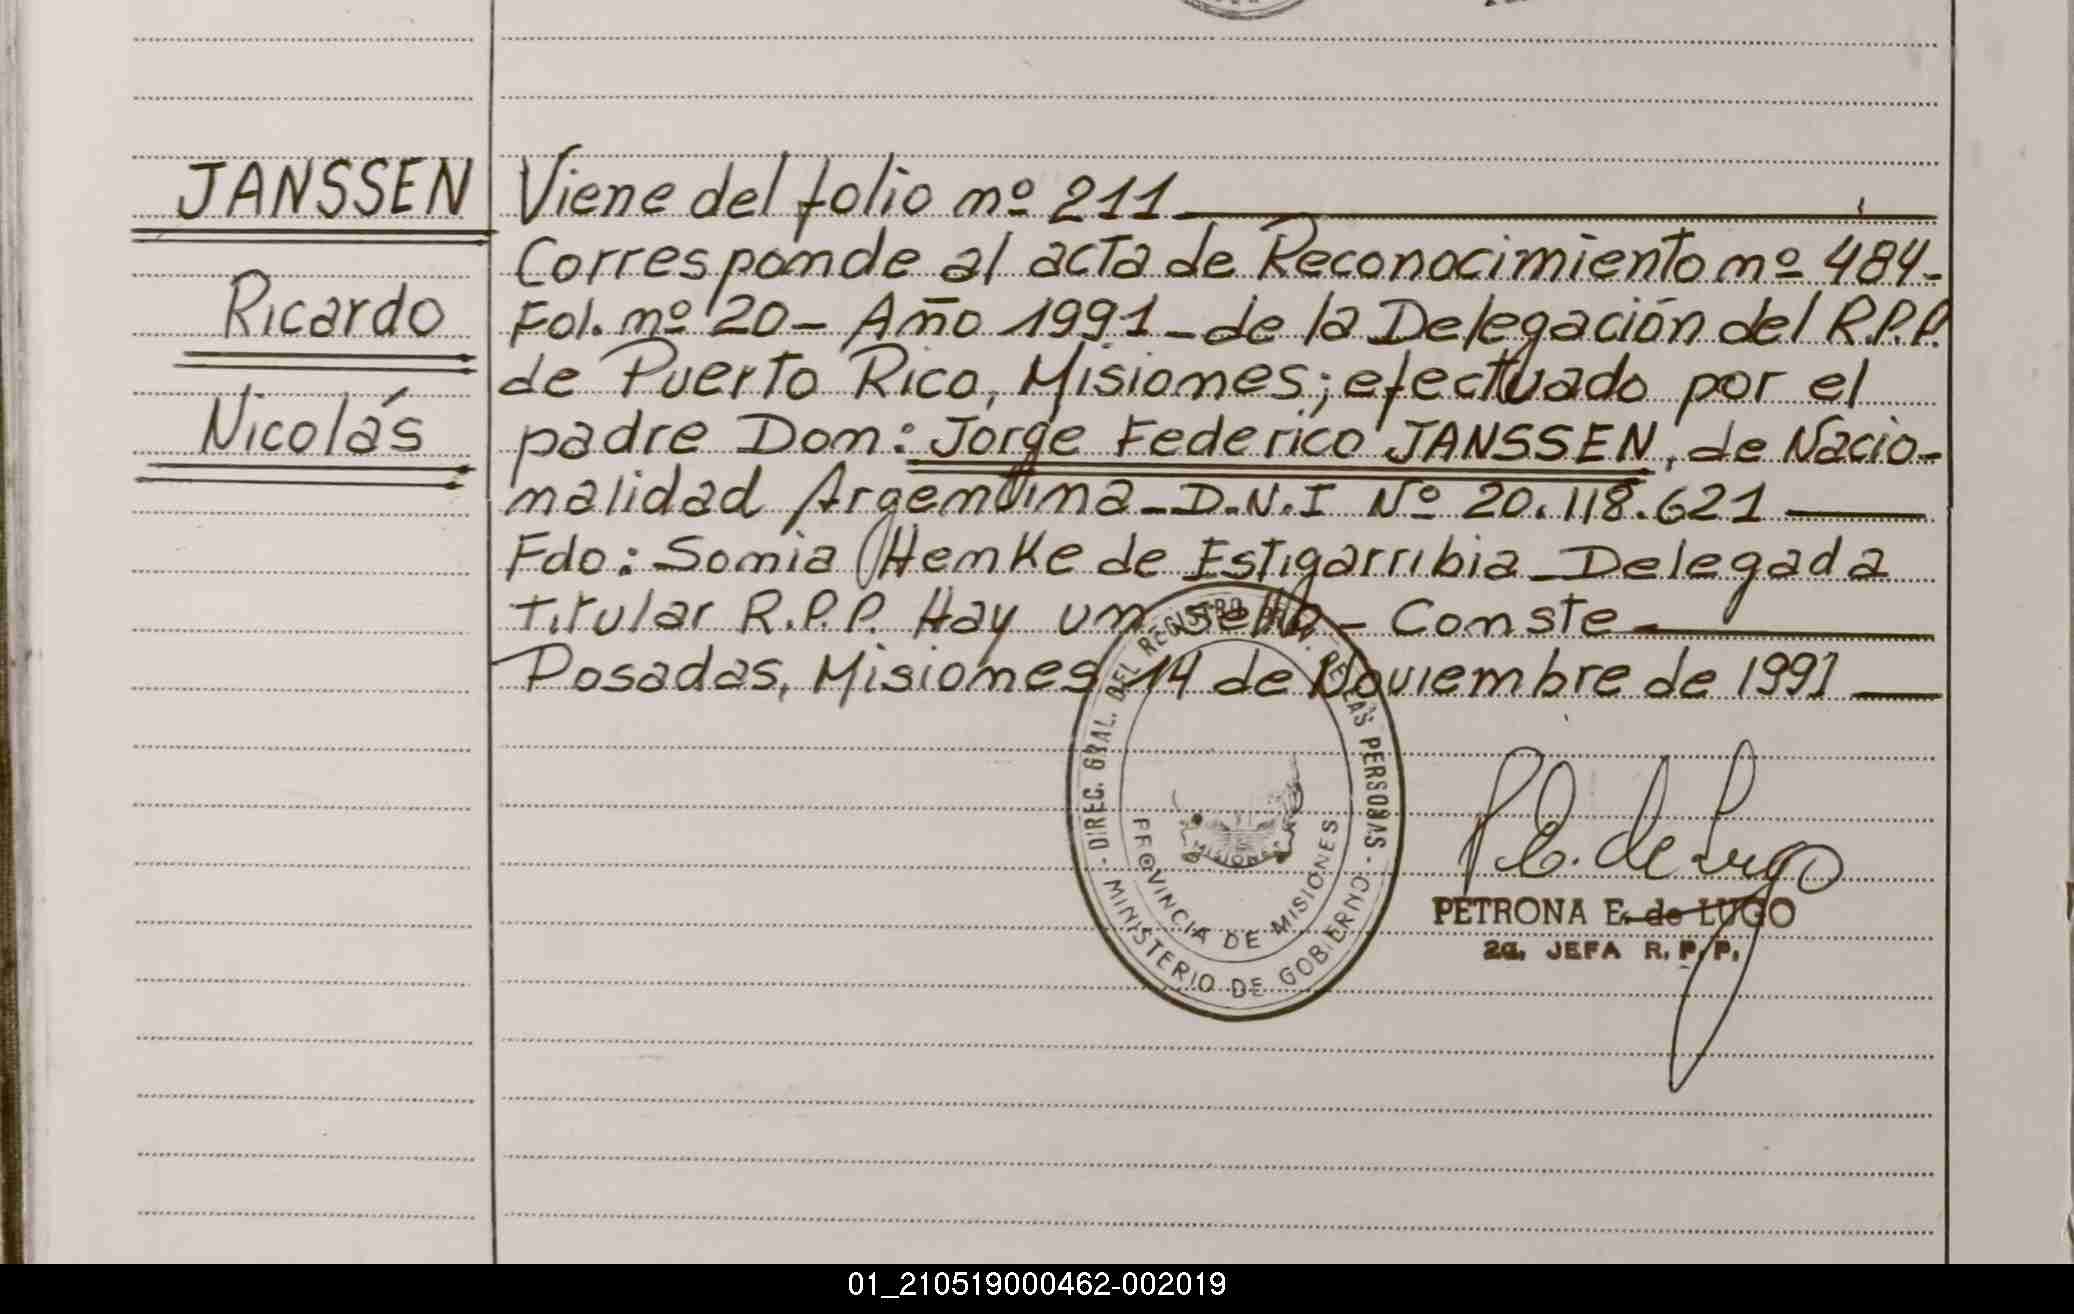 JANSSEN
Ricardo
Nicolás
Viene del folio nº 211
Corresponde al acta de Reconocimiento nº 484-
Fol. nº 20- Año 1991- de la Delegación del R.P.P.
de Puerto Rico, Misiones; efectuado por el
padre Don: Jorge Federico JANSSEN, de Nacio-
nalidad Argentina- D.N.I Nº 20.118.621
Fdo: Sonia Henke de Estigarribia- Delegada
Titular R.P.P. Hay un sello- Conste-
Posadas, Misiones 14 de Noviembre de 1991
DIREC. GRAL. DEL REGISTRO PROV. DE LAS PERSONAS
PROVINCIA DE MISIONES
MINISTERIO DE GOBIERNO
MISIONES
P. E. de Lugo
PETRONA E. de LUGO
2a. JEFA R. P. P.
01_210519000462-002019